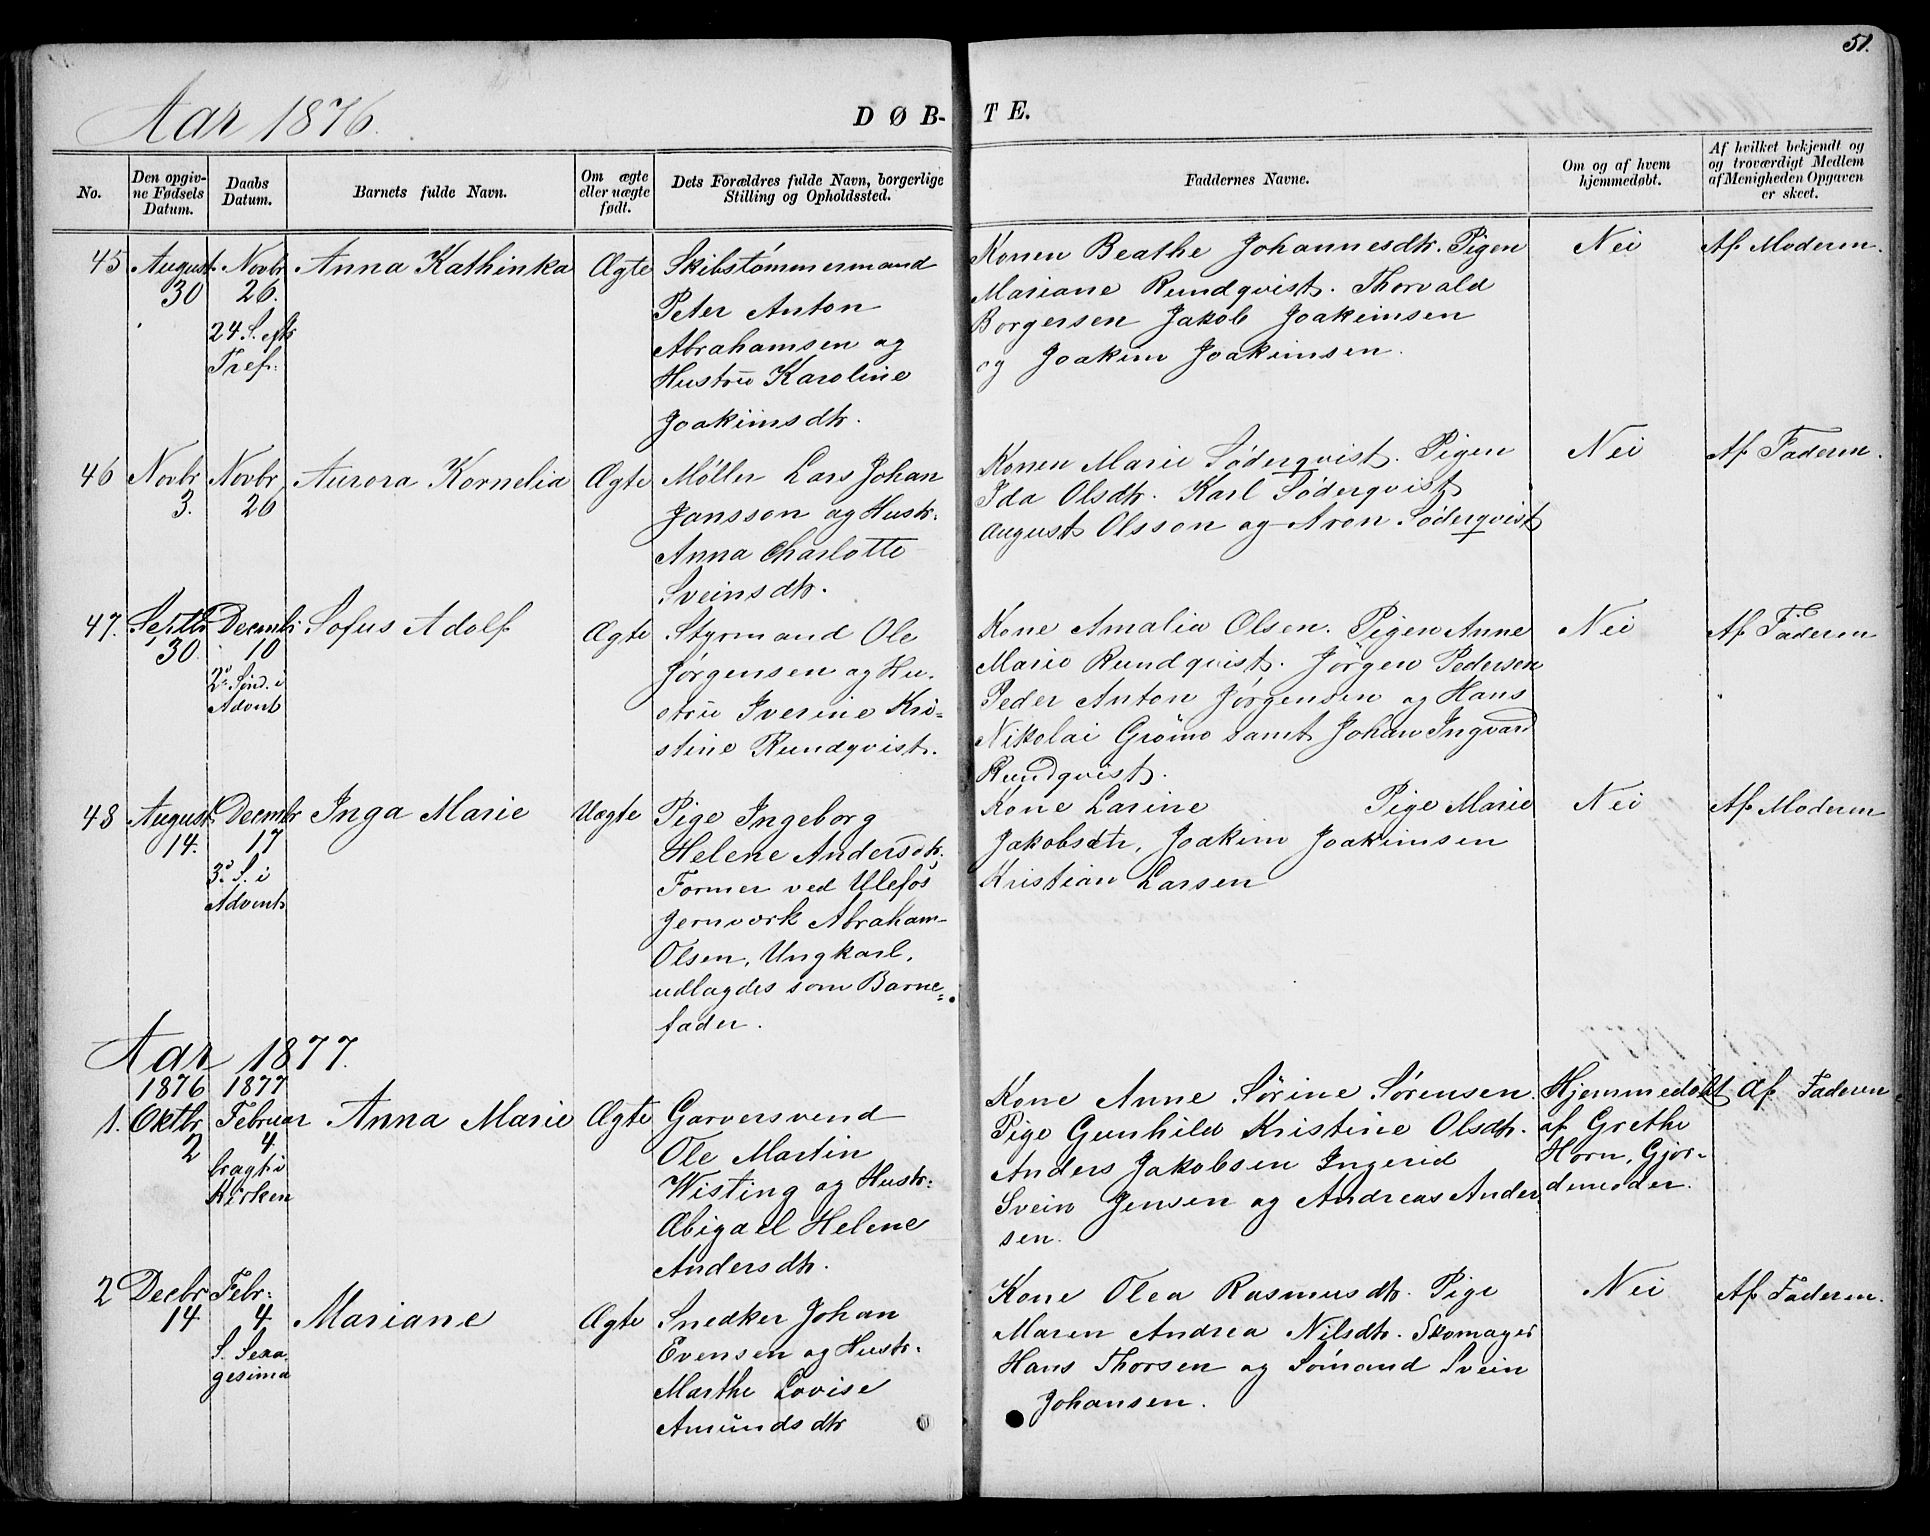 51.
Aar 1876.
DØB-TE.
No.
Den opgiv-
ne Fødsels
Datum.
Daabs
Datum.
Barnets fulde Navn.
Om ægte
eller uægte
født.
Dets Forældres fulde Navn, borgerlige
Stilling og Opholdssted.
Faddernes Navne.
Om og af hvem
hjemmedøbt.
Af hvilket bekjendt og
og troværdigt Medlem
af Menigheden Opgaven
er skeet.
45
August
30
Novbr
26.
24. S. eft
Tref.
Anna Kathinka
Ægte
Skibstømmermand
Peter Anton
Abrahamsen og
Hustru Karoline
Joakimsdtr.
Konen Beathe Johannesdtr. Pigen
Mariane Rundqvist. Thorvald
Borgersen Jakob Joakimsen
og Joakim Joakimsen.
Nei
Af Moderen.
46
Novbr
3.
Novbr
26
Aurora Kornelia
Ægte
Møller Lars Johan
Jansson og Hustr.
Anna Charlotte
Sveinsdtr.
Konen Marie Söderqvist. Pigen
Ida Olsdtr. Karl Söderqvist
August Olsson og Aron Söderqvist
Nei
Af Faderen.
47.
Septbr
30.
Decembr
10
2. Sønd. i
Advent
Sofus Adolf
Ægte
Styrmand Ole
Jørgensen og Hu-
stru Iverine Kri-
stine Rundqvist.
Kone Amalia Olsen. Pigen Anne
Marie Rundqvist. Jörgen Pedersen
Peder Anton Jørgensen og Hans
Nikolai Grømo samt Johan Ingvard
Rundqvist.
Nei
Af Faderen
48
August
14.
Decembr
17
3. S. i
Advent
Inga Marie
Uægte
Pige Ingeborg
Helene Andersdtr.
Former ved Ulefos
Jernværk Abraham
Olsen, Ungkarl,
udlagdes som Barne-
fader.
Kone Larine Pige Marie
Jakobsdtr, Joakim Joakimsen
Kristian Larsen
Nei
Af Moderen
Aar 1877.
1876 1877
1.
Oktbr
2
Februar
4
bragt i
Kirken
Anna Marie
Ægte
Garversvend
Ole Martin
Wisting og Hustr.
Abigael Helene
Andersdtr.
Kone Anne Sörine Sörensen.
Pige Gunhild Kristine Olsdtr.
Anders Jakobsen Ingerid
Svein Jensen og Andreas Ander
sen.
Hjemmedøbt
af Grethe
Horn, Gjor-
demoder.
Af Faderen
2
Decbr
14
Febr.
4.
S. Sexa-
gesima
Mariane
Ægte
Snedker Johan
Evensen og Hustr.
Marthe Lovise
Amundsdtr
Kone Olea Rasmusdtr. Pige
Maren Andrea Nilsdtr. Skomager
Hans Thorsen og Sömand Svein
Johansen.
Nei
Af Faderen.